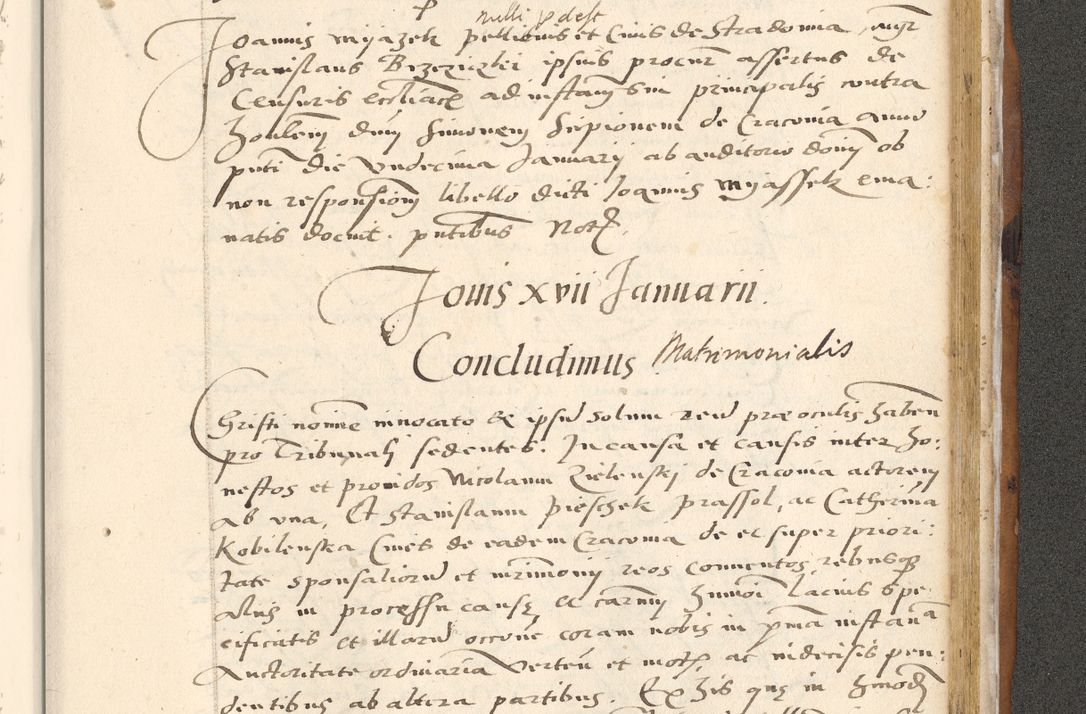 nulli prodest
Joannis myazek pellionis et Civis de Stradomia, eius
Stanislaus Brzeziczkei ipsius procur assertus de
Censuris eccliacꝭ ad instantiam sui principalis contra
honlem dnm Simonem Scipionem de Cracovia anno
pnti die vndecima Januarij ab auditorio domi ob
non responsionem libello dicti Joannis myassek ema:
natis docuit. pntibus Notꝭ.
Jouis xvii Januarii.
Concludimus Matrimonialis
Christi nomine innocato et ipsum solum deum præ oculis haben
pro Tribunali sedentes. In causa et causis inter ho:
nestos et prouidos Nicolaum Zielenskj de Cracouia actorem
ab vna, Et Stanislaum Pieschek prassol, ac Catherina
Kobilenska Ciues de eadem Cracouia de et super priori:
tate sponsaliorum et mrimonij reos conuentos, rebusqꝫ
alijs in processu causę et carum hmoi lacius spe
cificatis et illarum occone coram nobis in prima instan
Auctoritate ordinaria verten et motꝭ ac indecisis pen:
dentibus ab altera partibus. Ex his quę in hmodi